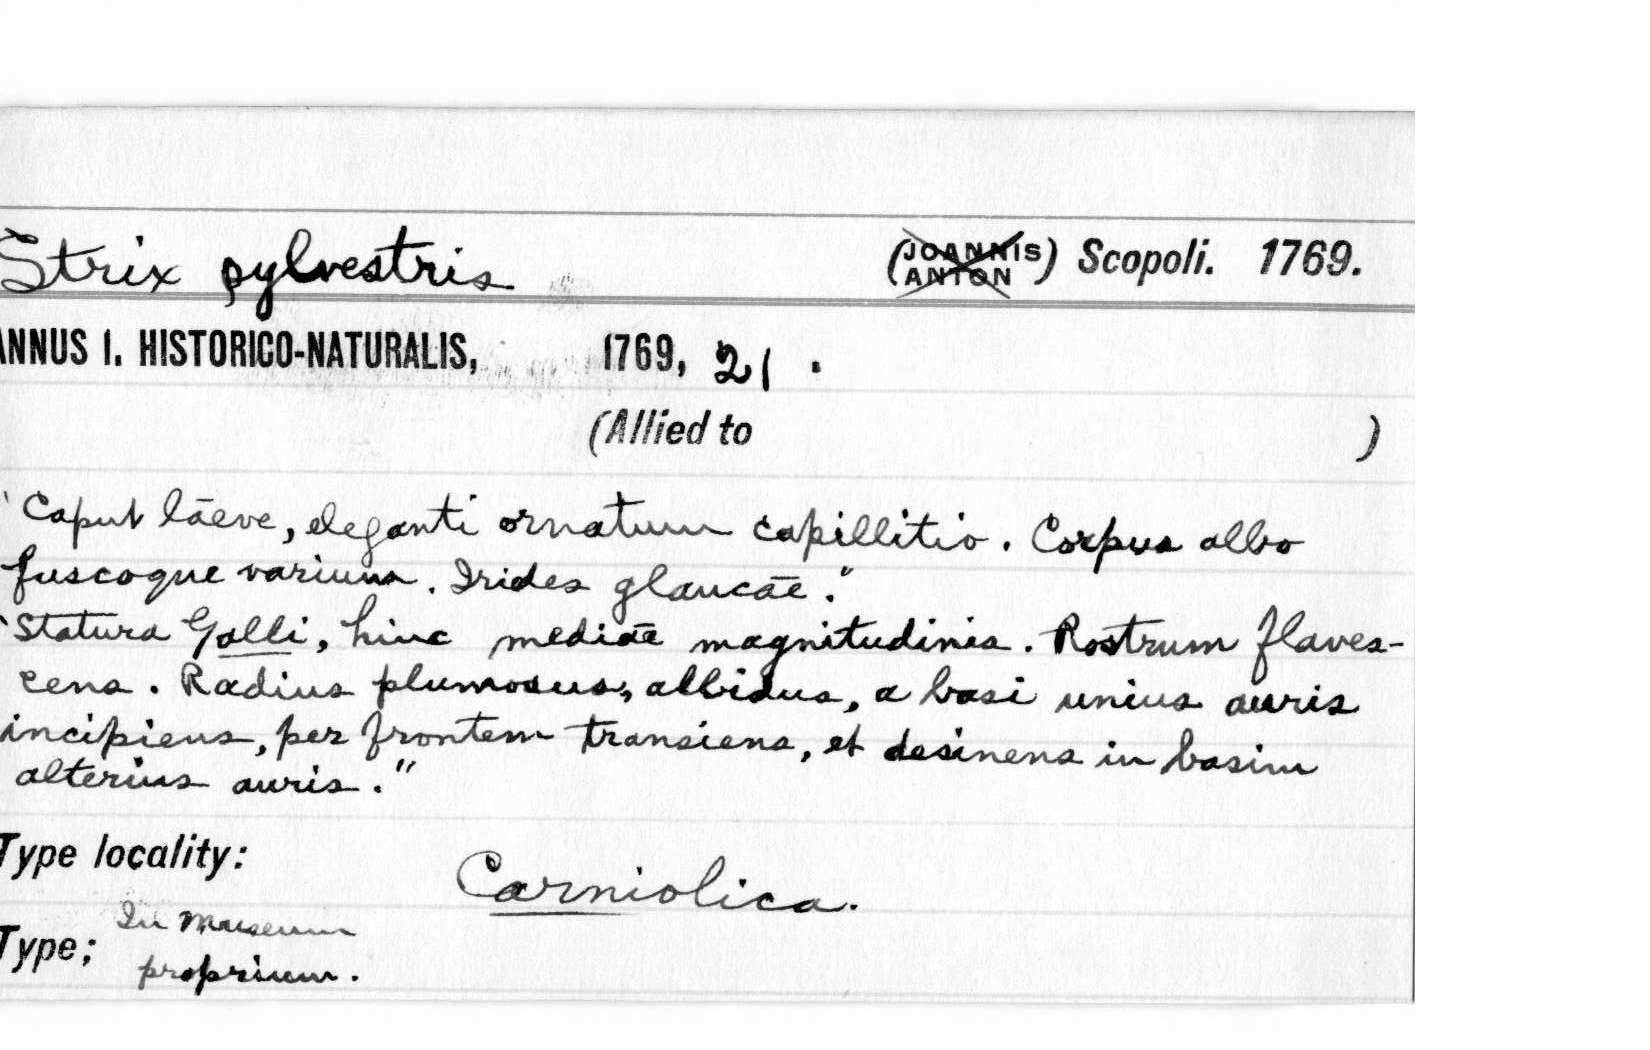 Strix sylvestris (JOANNIS ANTON) Scopoli. 1769.
ANNUS I. HISTORICO-NATURALIS, 1769, 21.
(Allied to )
"Caput lāeve, eleganti ornatum capillitio. Corpus albo
fuscoque varium. Irides glaucāe."
"Statura Galli, hinc mediāe magnitudinis. Rostrum flaves-
cens. Radius plumosus, albidus, a basi unius auris
incipiens, per frontem transiens, et desinens in basim
alterius auris."
Type locality: Carniolica.
Type; In Museum
proprium.